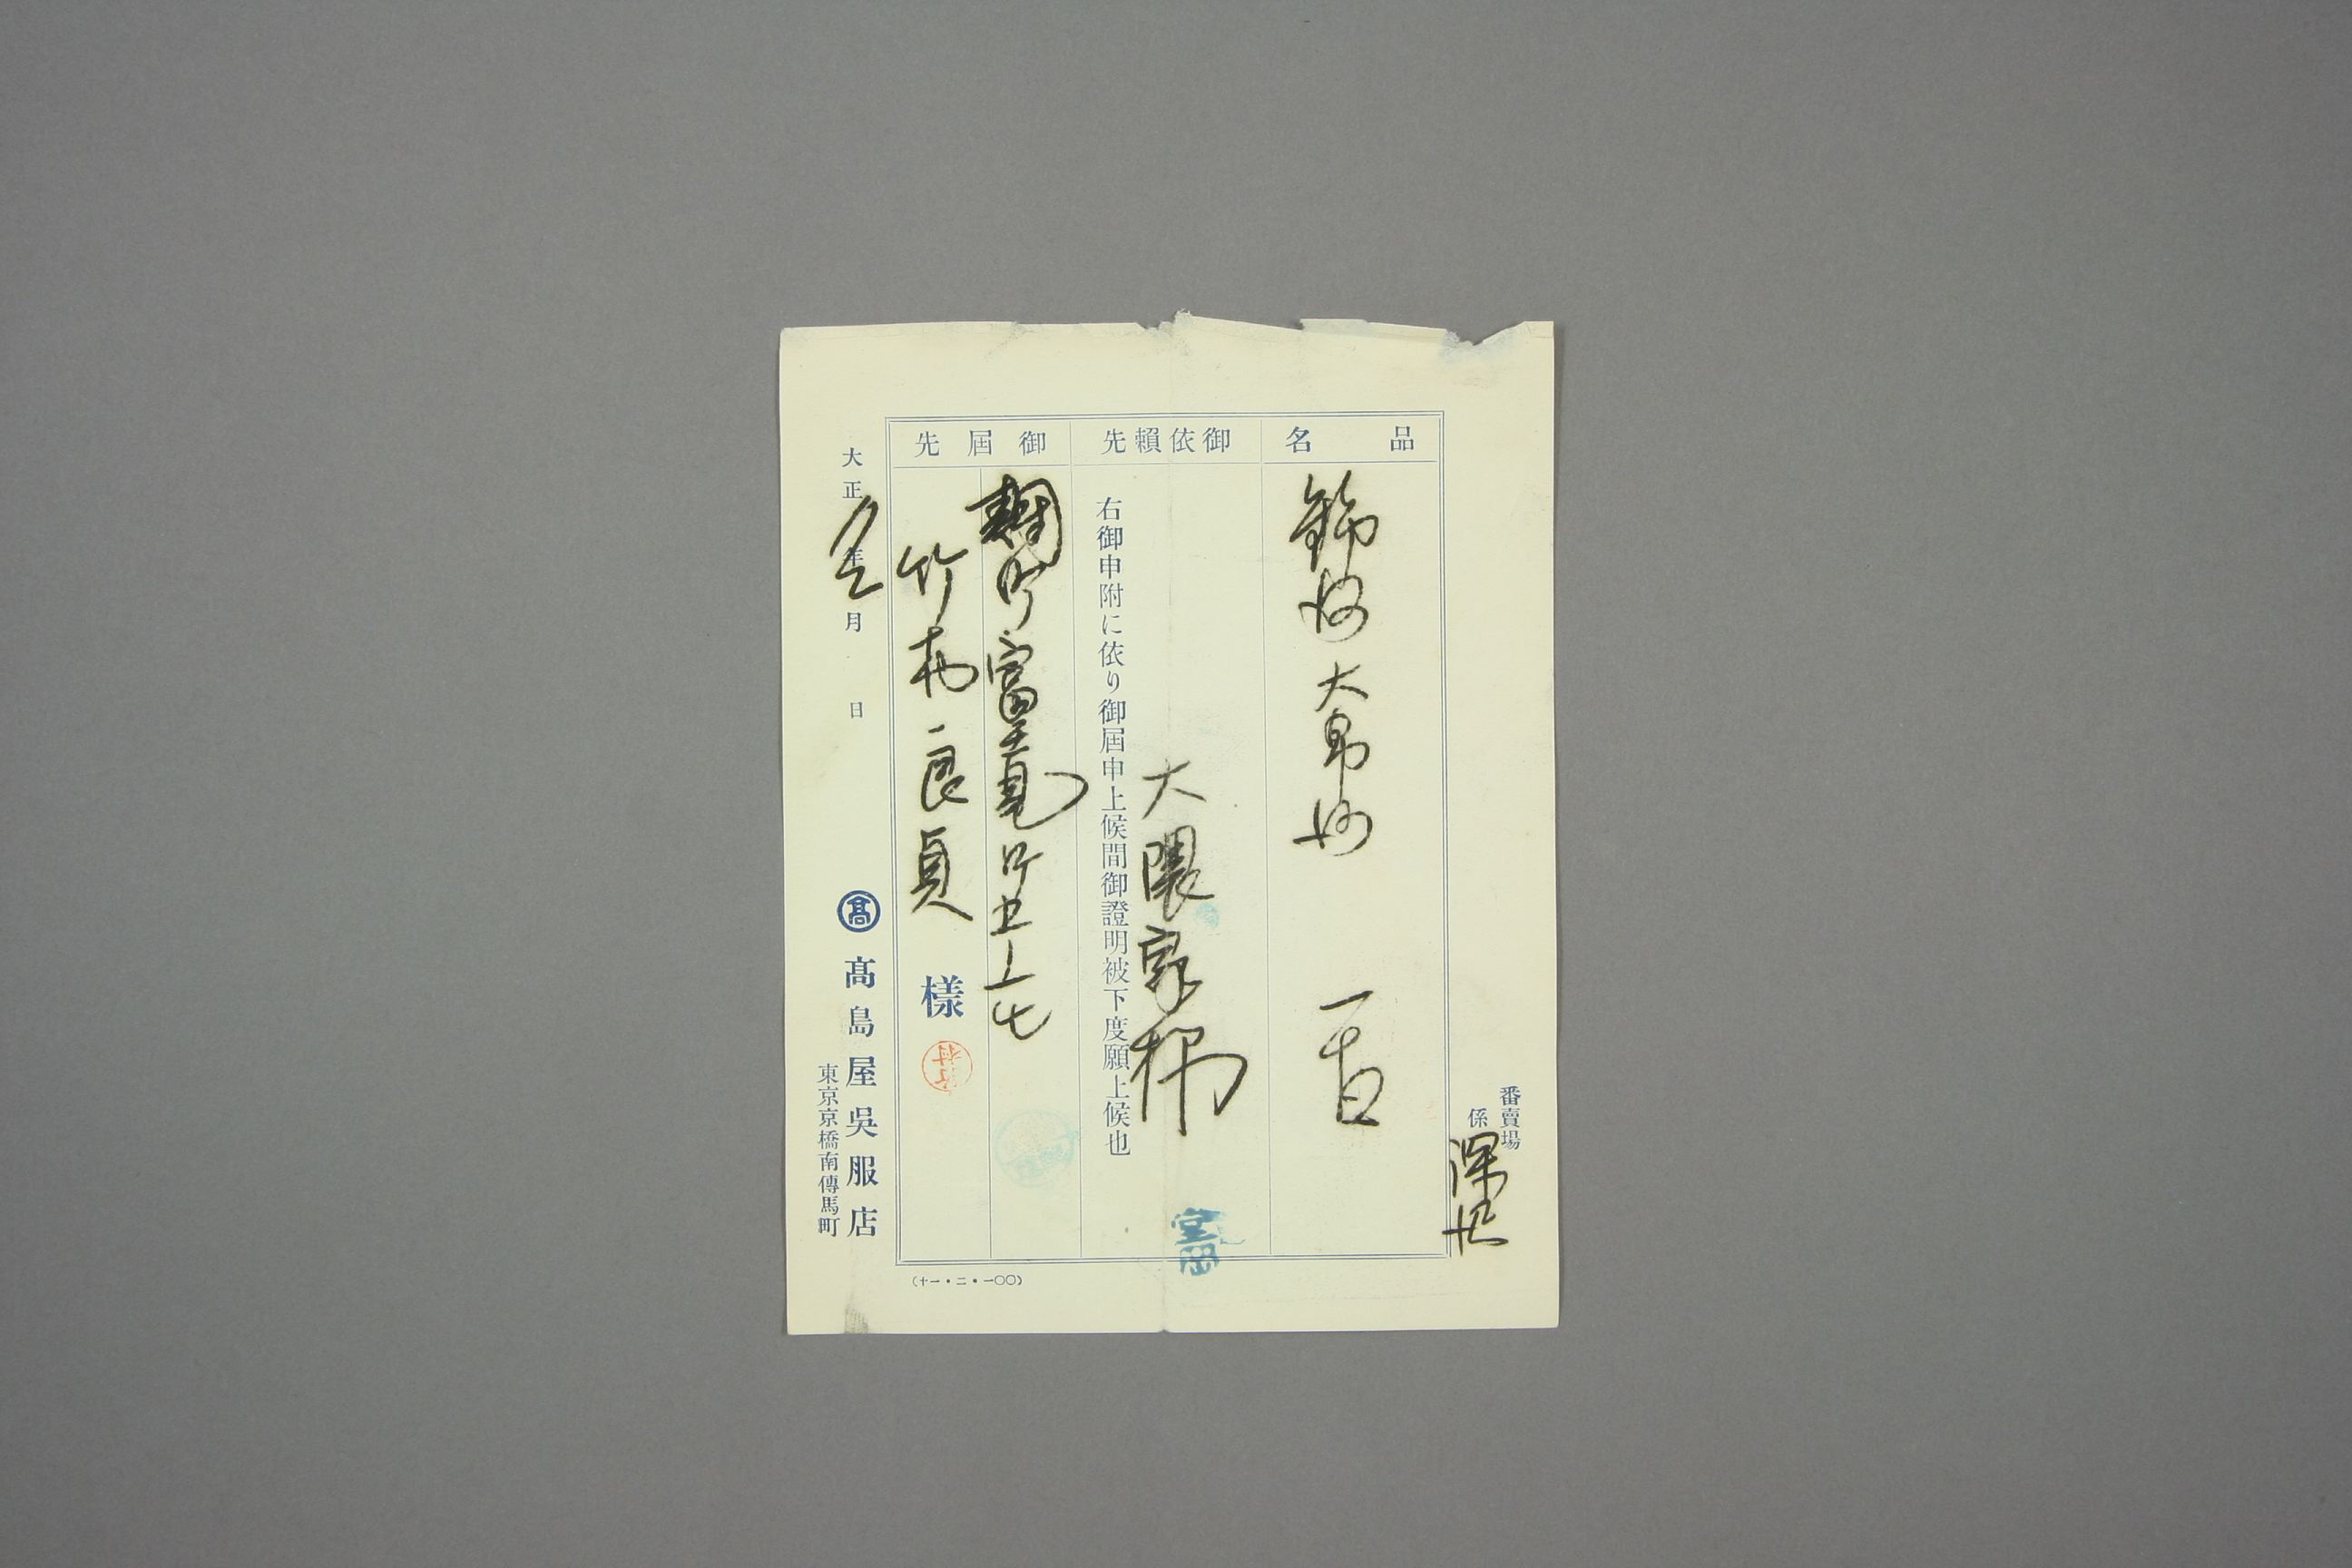 番賣場
係 深
品名
錦 大帛
御依賴先
大隈家様
右御申附に依り御屆申上候間御證明被下度願上候也
御屆先
麹町富士見町五ノ七
竹 良貞 樣
大正 年 月 日
髙 髙島屋吳服店
東京京橋南傳馬町
(十一・二・一〇〇)